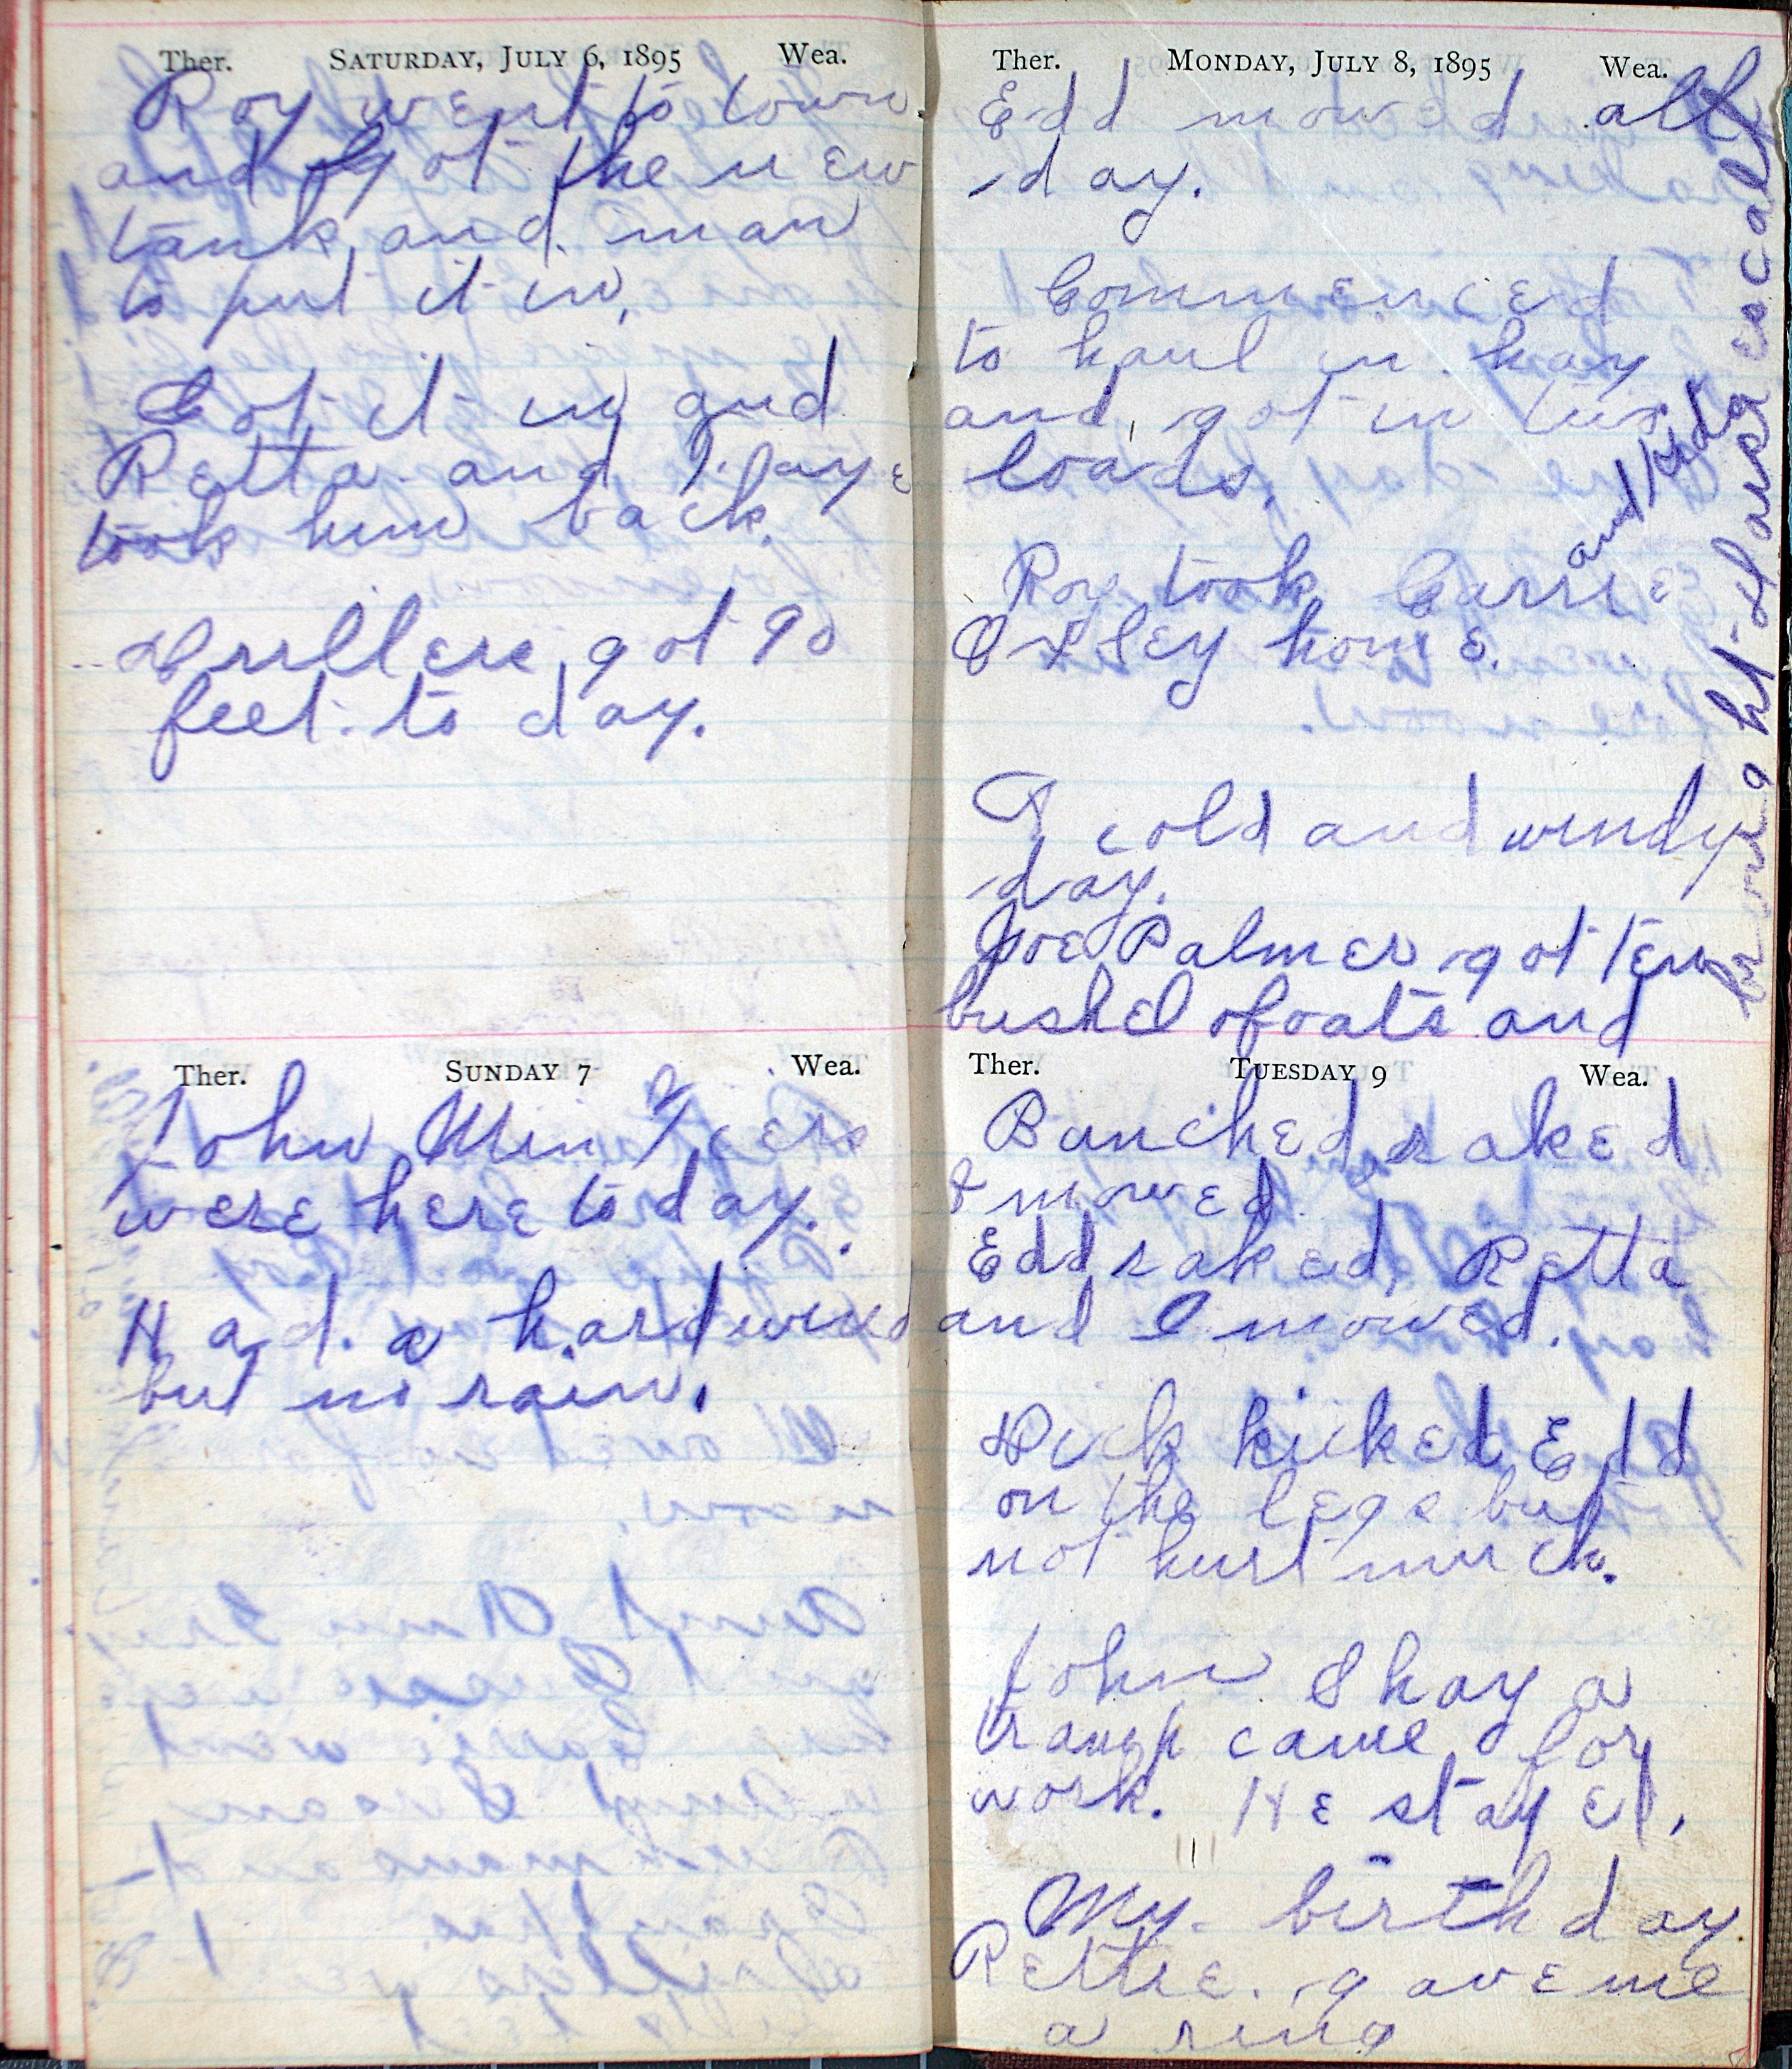 Ther. SATURDAY, JULY 6, 1895 Wea.
Roy went to town
and got the new
tank and man
to put it in,
Got it in and
Retta and Faye
took him back.
Drillers got 90
feet to day.
Ther. SUNDAY 7 Wea.
John Minzcers
were here to day.
Had a hard wind
but no rain.
Ther. MONDAY, JULY 8, 1895 Wea.
Edd mowed all
day.
Commenced
to haul in hay
and got in two
loads.
Roy took Carrie
Oxley home.
A cold and windy
day.
Joe Palmer got ten
bushel of oats and
brought Harps cscal
and
Ther. TUESDAY 9 Wea.
Bunched raked
& mowed
Edd raked, Retta
and I mowed.
Dick kicked Edd
on the legs but
not hurt much.
John Shay a
tramp came for
work. He stayed.
My birthday
Rettie gave me
a ring